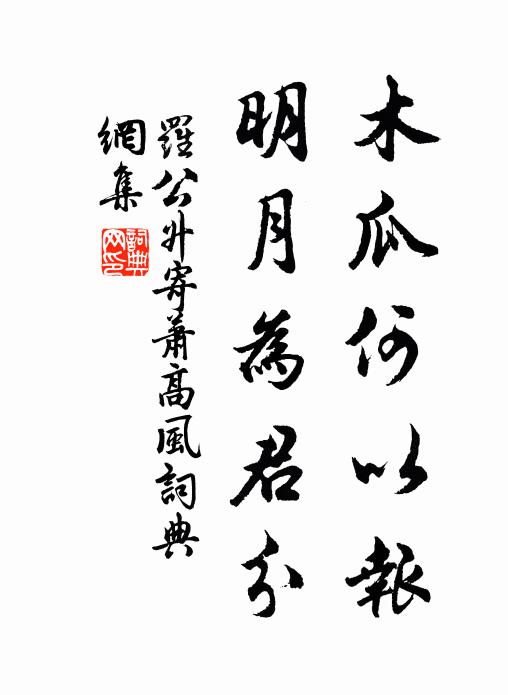 木瓜何以報
明月為君分
羅公升寄蕭高風詞典
網集
詞典
网印